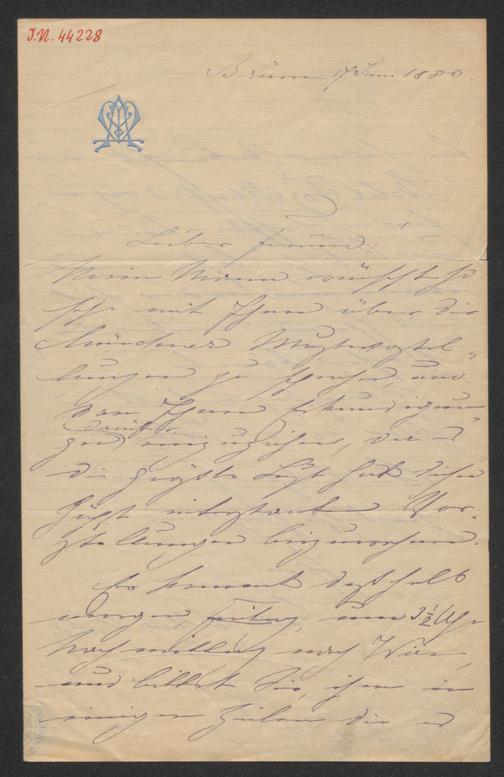 J.N. 44228
Brünn 17 Juni 1880.
Lieber Freund!
Mein Mann wünscht so
sehr mit Ihnen über die
Münchener Mustervorstel-
lungen zu sprechen, und
von Ihnen Erkundigun-
gen darüber einzuziehen, da er
die größte Lust hat diesen
höchst interessanten Vor-
stellungen beizuwohnen.
Er kommt deßhalb
morgen Freitag, um 3 ½ Uhr
Nachmittag nach Wien,
und bittet Sie, ihm in
einigen Zeilen, die er